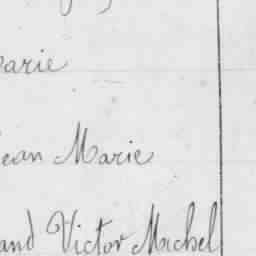 arie
ean Marie
and Victor Michel